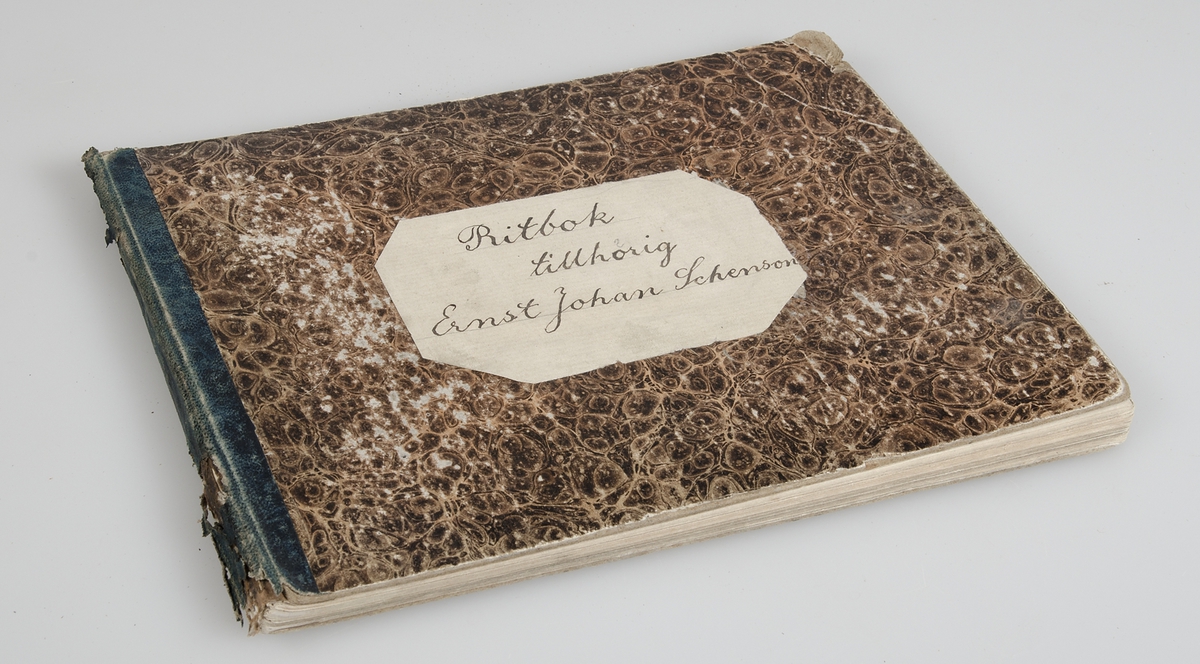 Ritbok
tillhörig
Ernst Johan Schenson